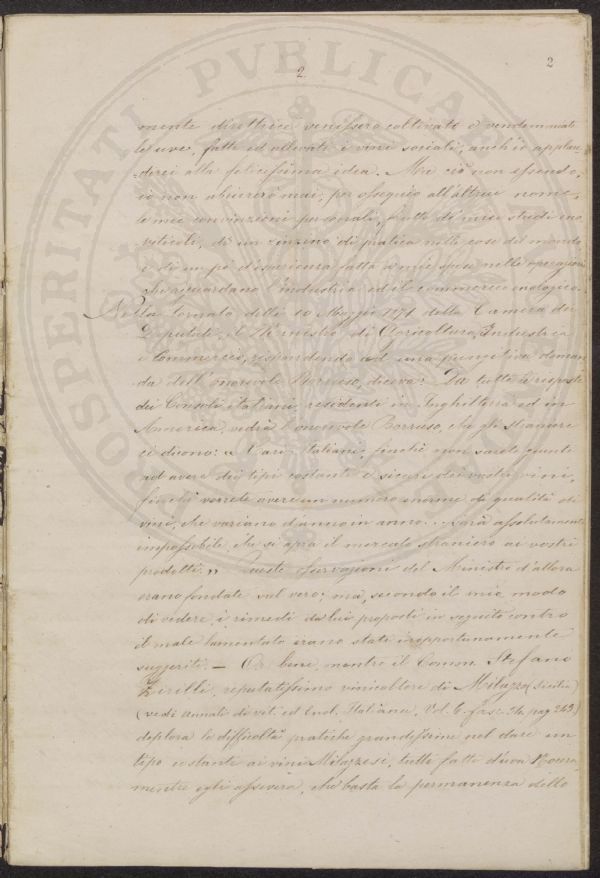 2
2
mente direttrice venissero coltivati e vendemmiati
le uve, fatti ed allevati i vini sociali, anch'io applau-
=derei alla felicissima idea. Ma ciò non essendo,
io non abiurerò mai, per ossequio all'altrui nome,
le mie convinzioni personali, frutto di miei studi eno
viticoli, di un di pratica nelle cose del mondo,
e di un pò d'esperienza fatta a mie spese nelle operazioni
che riguardano l'industria ed il commercio enologico.
Nella tornata delli 10 Maggio 1871 della Camera dei
Deputati, il Ministro di Agricoltura, Industria
e Commercio, rispondendo ad una doman
da dell'onorevole Borruso, diceva: Da tutte le risposte
dei Consoli italiani, residenti in Inghilterra ed in
America, vedrà l'onorevole Borruso, che gli stranieri
ci dicono: « Cari Italiani, finchè non sarete giunti
ad avere dei tipi costanti e sicuri dei vostri vini,
finchè vorrete avere un numero enorme di qualità di
vini, che variano d'anno in anno... sarà assolutamente
impossibile che si apra il mercato straniero ai vostri
prodotti. » Queste osservazioni del Ministro d'allora
erano fondate sul vero; ma, secondo il mio modo
di vedere, i rimedi da lui proposti in seguito contro
il male lamentato erano stati inopportunamente
suggeriti. — Or bene, mentre il Comm. Stefano
Zirilli, reputatissimo vinicoltore di Milazzo (Sicilia)
(vedi annali di vit. ed Enol. Italiana, Vol. 6. fasc. 34, pag. 243)
deplora le difficoltà pratiche grandissime nel dare un
tipo costante ai vini Milazzesi, tutti fatti d'uva Nocera,
mentre egli assevera, che basta la permanenza dello
PROSPERITATI PVBLICAE